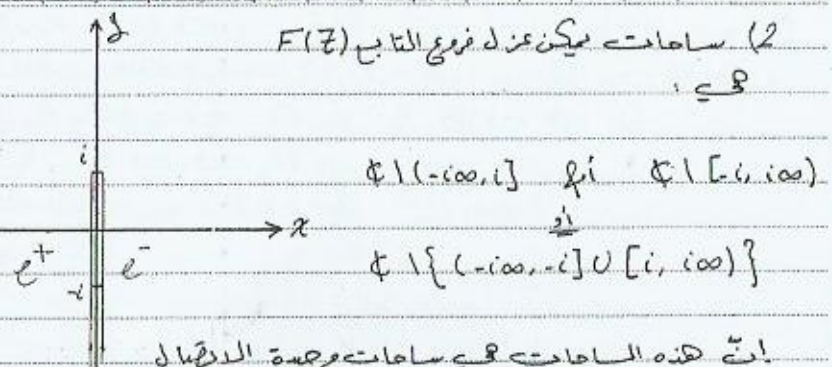 2) ساحات يمكن عزل فروع التابع F(Z)
هي :
ℂ \ (-i∞, i] أو ℂ \ [-i, i∞)
أو
ℂ \ { (-i∞, -i] ∪ [i, i∞) }
إنّ هذه الساحات هي ساحات وحيدة الاتصال
y
i
x
e⁺ e⁻
-i